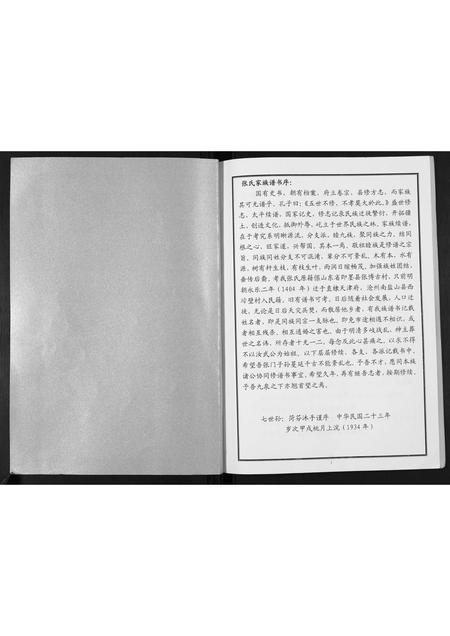 张氏家族谱书序：
国有史书，朝有档案，府立卷宗，县修方志，而家族
其可无谱乎，孔子曰：《五世不修，不孝莫大於此，》盛世修
志，太平续谱，国家记史，修志记张民族迁徙繁衍，开拓疆
土，创造文化，抵御外辱，屹立于世界民族之林，家族续谱，
在于考究系明晰源流，分支派，睦九族，聚同族之力，结同
根之心，旺家道，兴帮国，其本一焉，敬祖睦族是修谱之宗
旨，同族同姓分支不可混清，辈分不可紊乱，木有本，水有
源，树有杆生枝，有枝生叶，而润日暖畅茂，加强族姓团结，
垂传后裔，考我张氏原籍係山东省即墨县张博古村，只前明
朝永乐二年（1404 年）过于直棣天津府，沧州南盐山县西
刁壁村入民籍，旧有谱书可考，日后随着社会发展，人口迁
徙，无论是日后天灾兵焚，而散居他乡者，有我族谱书记载
姓名者，即是同族同宗一支脉也，即免市途相遇不相识，或
者相互残杀，相互通婚之害也，由于明清多岐战乱，绅主葬
世之名讳，所存者十无一二，每念及此心甚痛之，以求不得
不以汝武公为始祖，以下层层修续，各支，各派记载书中，
希望吾张门子孙蔓延千古不能紊乱也，予吾不才，愿同本族
诸公协同修谱书事宜，希望久年，再有继吾志者，按期修续，
予吾九泉之下亦翘首望之焉，
七世孙：荷芬沐手谨序 中华民国二十三年
岁次甲戌桃月上浣（1934 年）
1